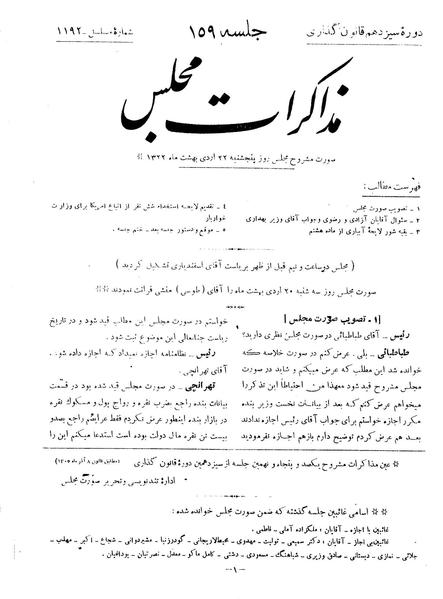 دورهٔ سیزدهم قانون گذاری
جلسه ۱۵۹
شمارهٔ مسلسل - ۱۱۹۲
مذاکرات مجلس
صورت مشروح مجلس روز پنجشنبه ۲۲ اردی بهشت ماه ۱۳۲۲ ※
فهرست مطالب:
۱ - تصویب صورت مجلس
۲ - سئوال آقایان آزادی و رضوی و جواب آقای وزیر بهداری
۳ - بقیه شور لایحهٔ آبیاری از ماده هشتم
۴ - تقدیم لایحه استخدام شش نفر از اتباع امریکا برای وزارت خواربار
۵ - موقع و دستور جلسه بعد - ختم جلسه
( مجلس دو ساعت و نیم قبل از ظهر بریاست آقای اسفندیاری تشکیل گردید )
صورت مجلس روز سه شنبه ۲۰ اردی بهشت ماه را آقای (طوسی) منشی قرائت نمودند ※※
[ ۱ - تصویب صورت مجلس ]
رئیس - آقای طباطبائی در صورت مجلس نظری دارید؟
طباطبائی - بلی. عرض کنم در صورت خلاصه که
خوانده شد این مطلب که عرض میکنم و شاید در صورت
مجلس مشروح قید شود معهذا من احتیاطاً این تذکر را
میخواهم عرض کنم که بعد از بیانات نخست وزیر بنده
مکرر اجازه خواستم برای جواب آقای رئیس اجازه ندادند
بعد هم عرض کردم توضیح دارم بازهم اجازه نفرمودید
خواستم در صورت مجلس این مطلب قید شود و در تاریخ
ریاست جنابعالی این موضوع ثبت شود.
رئیس - نظامنامه اجازه نمیداد که اجازه داده شود.
آقای تهرانچی.
تهرانچی - در صورت مجلس قید شده بود در قسمت
بیانات بنده راجع بضرب نقره و رواج پول و مسکوک نقره
در بازار بنده اینطور عرض نکردم فقط عرایضم راجع بصدو
بیست تن نقره مال دولت بوده است استدعا میکنم این را
※ عین مذاکرات مشروح یکصد و پنجاه و نهمین جلسه از سیزدهمین دورهٔ قانون گذاری (مطابق قانون ۸ آذر ماه ۱۳۰۵)
ادارهٔ تندنویسی و تحریر صورت مجلس
※※ اسامی غائبین جلسه گذشته که ضمن صورت مجلس خوانده شده:
غائبین با اجازه - آقایان: ملکزاده آملی - فاطمی.
غائبین بی اجازه - آقایان: دکتر سمیعی - تولیت - مهدوی - محیط لاریجانی - گودرزنیا - مشیر دوانی - شجاع - اکبر - مهذب -
جلائی - نمازی - دبستانی - صادق وزیری - شباهنگ - مسعودی - دشتی - کامل ماکو - معدل - نصرتیان - بوداغیان.
-۱-